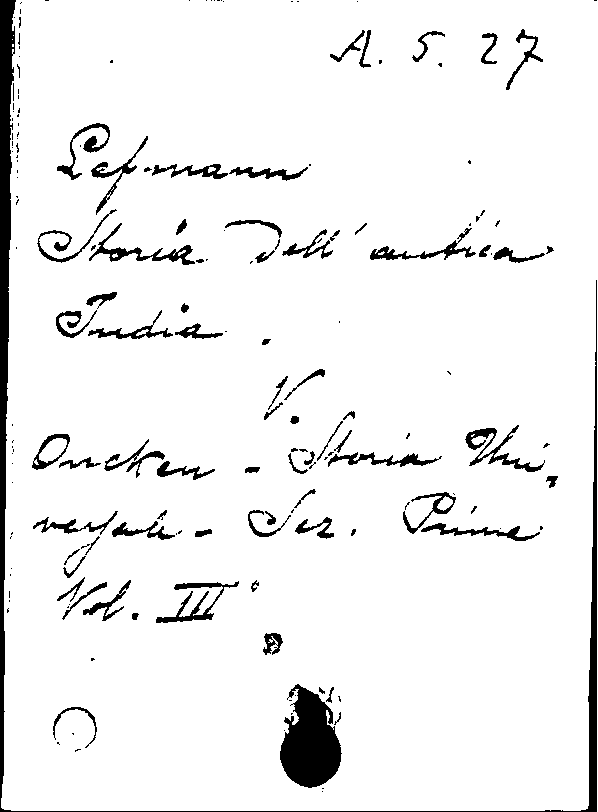 A. 5. 27
Lefmann
Storia dell'antica
India.
V.
Oncken - Storia Uni-
versale - Sez. Prima
Vol. III°